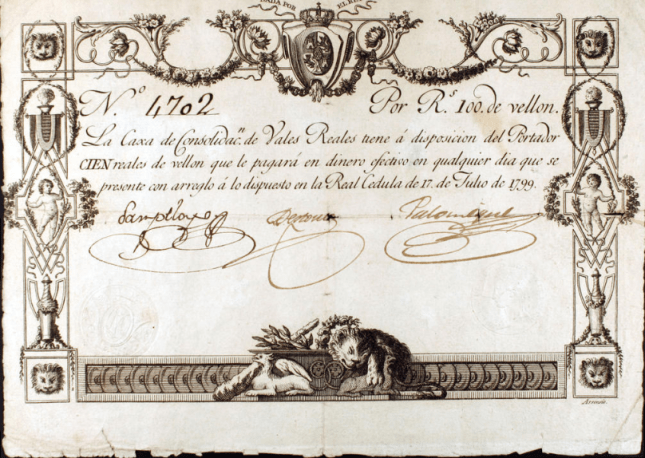 DADA POR EL REY
N.º 4702 Por R.ˢ 100. de vellon.
La Caxa de Consolidac.ⁿ de Vales Reales tiene á disposicion del Portador
CIEN reales de vellon que le pagará en dinero efectivo en qualquier dia que se
presente con arreglo á lo dispuesto en la Real Cedula de 17. de Julio de 1799.
Palomeque